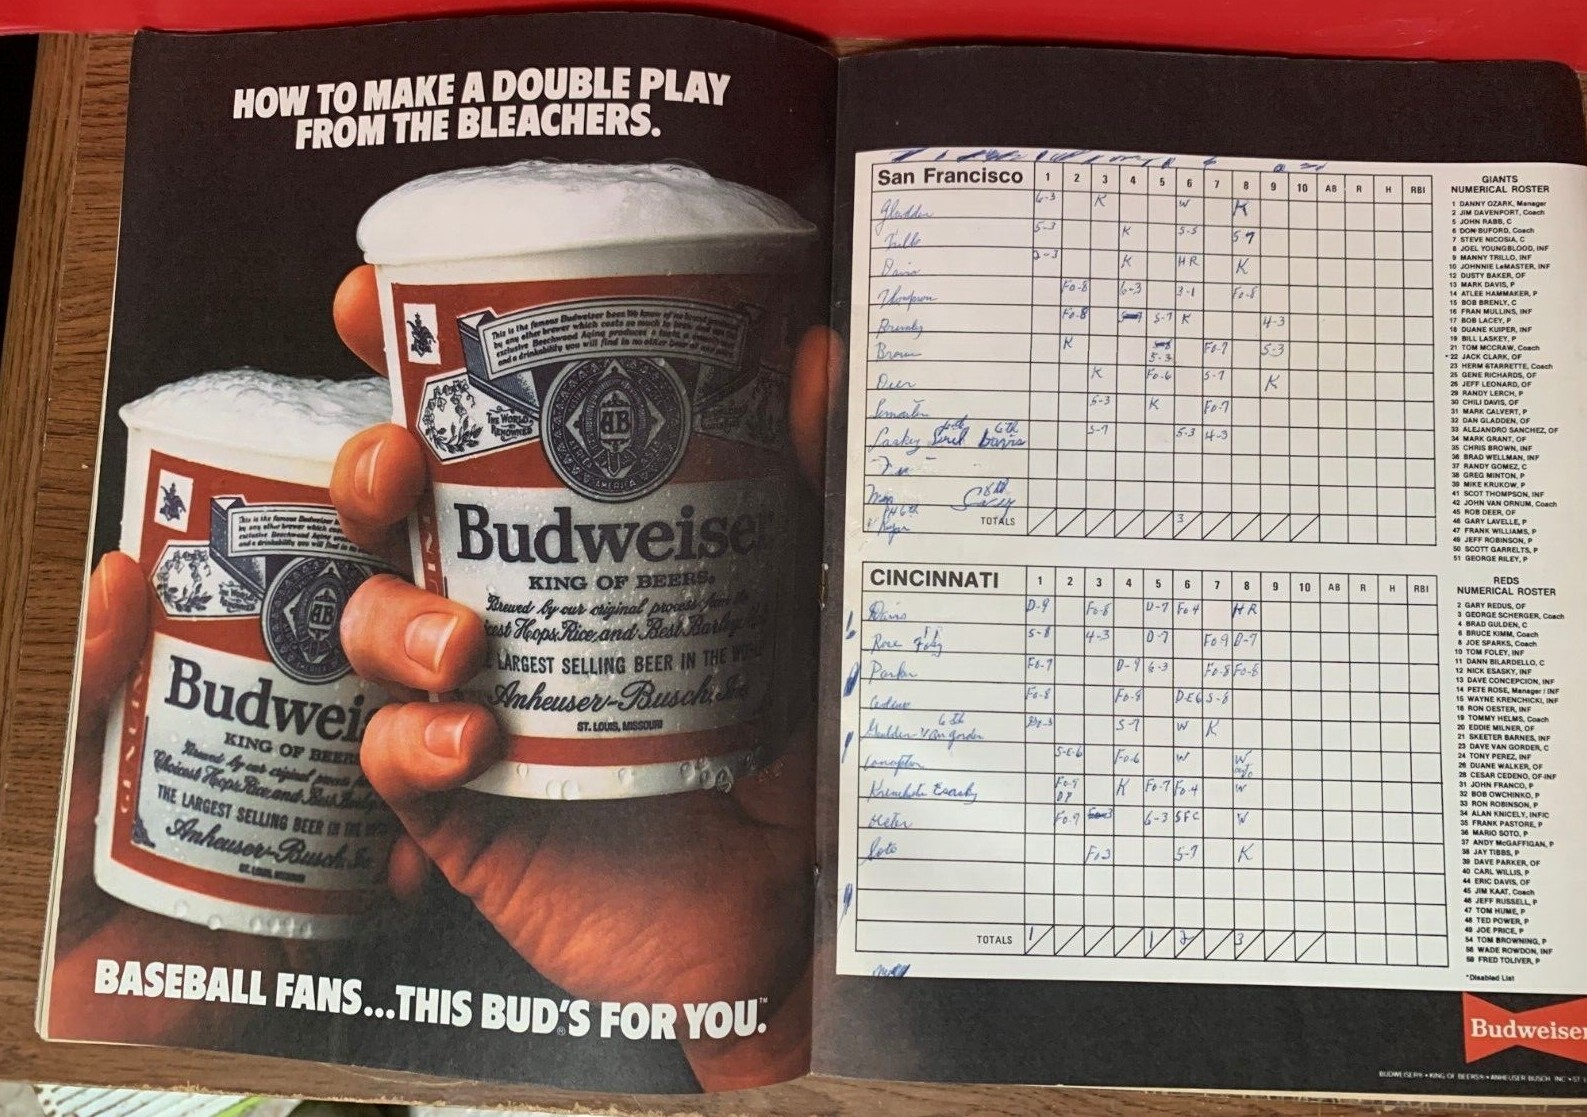 HOW TO MAKE A DOUBLE PLAY
FROM THE BLEACHERS.
This is the famous Budweiser beer. We know of no brand
by any other brewer which costs so much to brew and
exclusive Beechwood Aging produces a taste
and a drinkability you will find in no other beer at any
THE WORLD
RENOWNED
AB
AMERICA
Budweise
KING OF BEERS®
Brewed by our original process from the
Choicest Hops, Rice and Best Barley
LARGEST SELLING BEER IN THE
Anheuser-Busch, Inc
ST. LOUIS, MISSOURI
Budwei
KING OF BEER
Brewed by our original process
Choicest Hops, Rice and Best Barl
THE LARGEST SELLING BEER IN THE
Anheuser-Busch, Inc
ST. LOUIS, MISSOURI
BASEBALL FANS...THIS BUD'S FOR YOU.™
San Francisco 1 2 3 4 5 6 7 8 9 10 AB R H RBI
Gladden 6-3 K W K
5-3 K 5-3
Davis K HR K
Thompson Fo-8 6-3 3-1 Fo-8
Fo-8 5-7 K 4-3
Brown K 5-3 Fo-7 5-3
Deer K Fo-6 5-7 K
Lemaster 5-3 K Fo-7
Laskey 6th Davis 5-3 4-3
8th
TOTALS 3
CINCINNATI 1 2 3 4 5 6 7 8 9 10 AB R H RBI
Davis D-9 Fo-8 D-7 Fo-4 HR
Rose Foley 5-8 4-3 D-7 Fo-9 D-7
Parker Fo-7 D-9 6-3 Fo-8 Fo-8
Cedeno Fo-8 Fo-8 5-8
Gulden Van Gorder 6th 5-7 W K
Fo-6 W W
Krenchicki Esasky Fo-9 DP K Fo-7 Fo-4 W
Oester Fo-9 6-3 W
Soto Fo-3 5-7 K
TOTALS 1 1 2 3
GIANTS
NUMERICAL ROSTER
1 DANNY OZARK, Manager
2 JIM DAVENPORT, Coach
5 JOHN RABB, C
6 DON BUFORD, Coach
7 STEVE NICOSIA, C
8 JOEL YOUNGBLOOD, INF
9 MANNY TRILLO, INF
10 JOHNNIE LeMASTER, INF
12 DUSTY BAKER, OF
13 MARK DAVIS, P
14 ATLEE HAMMAKER, P
15 BOB BRENLY, C
16 FRAN MULLINS, INF
17 BOB LACEY, P
18 DUANE KUIPER, INF
19 BILL LASKEY, P
21 TOM McCRAW, Coach
*22 JACK CLARK, OF
23 HERM STARRETTE, Coach
25 GENE RICHARDS, OF
26 JEFF LEONARD, OF
29 RANDY LERCH, P
30 CHILI DAVIS, OF
31 MARK CALVERT, P
32 DAN GLADDEN, OF
33 ALEJANDRO SANCHEZ, OF
34 MARK GRANT, OF
35 CHRIS BROWN, INF
36 BRAD WELLMAN, INF
37 RANDY GOMEZ, C
38 GREG MINTON, P
39 MIKE KRUKOW, P
41 SCOT THOMPSON, INF
42 JOHN VAN ORNUM, Coach
45 ROB DEER, OF
46 GARY LAVELLE, P
47 FRANK WILLIAMS, P
49 JEFF ROBINSON, P
50 SCOTT GARRELTS, P
51 GEORGE RILEY, P
REDS
NUMERICAL ROSTER
2 GARY REDUS, OF
3 GEORGE SCHERGER, Coach
4 BRAD GULDEN, C
6 BRUCE KIMM, Coach
8 JOE SPARKS, Coach
10 TOM FOLEY, INF
11 DANN BILARDELLO, C
12 NICK ESASKY, INF
13 DAVE CONCEPCION, INF
14 PETE ROSE, Manager / INF
15 WAYNE KRENCHICKI, INF
16 RON OESTER, INF
19 TOMMY HELMS, Coach
20 EDDIE MILNER, OF
21 SKEETER BARNES, INF
23 DAVE VAN GORDER, C
24 TONY PEREZ, INF
26 DUANE WALKER, OF
28 CESAR CEDENO, OF-INF
31 JOHN FRANCO, P
32 BOB OWCHINKO, P
33 RON ROBINSON, P
34 ALAN KNICELY, INF/C
35 FRANK PASTORE, P
36 MARIO SOTO, P
37 ANDY McGAFFIGAN, P
38 JAY TIBBS, P
39 DAVE PARKER, OF
40 CARL WILLIS, P
44 ERIC DAVIS, OF
45 JIM KAAT, Coach
46 JEFF RUSSELL, P
47 TOM HUME, P
48 TED POWER, P
49 JOE PRICE, P
54 TOM BROWNING, P
56 WADE ROWDON, INF
58 FRED TOLIVER, P
*Disabled List
Budweiser
BUDWEISER® • KING OF BEERS® • ANHEUSER BUSCH, INC. • ST